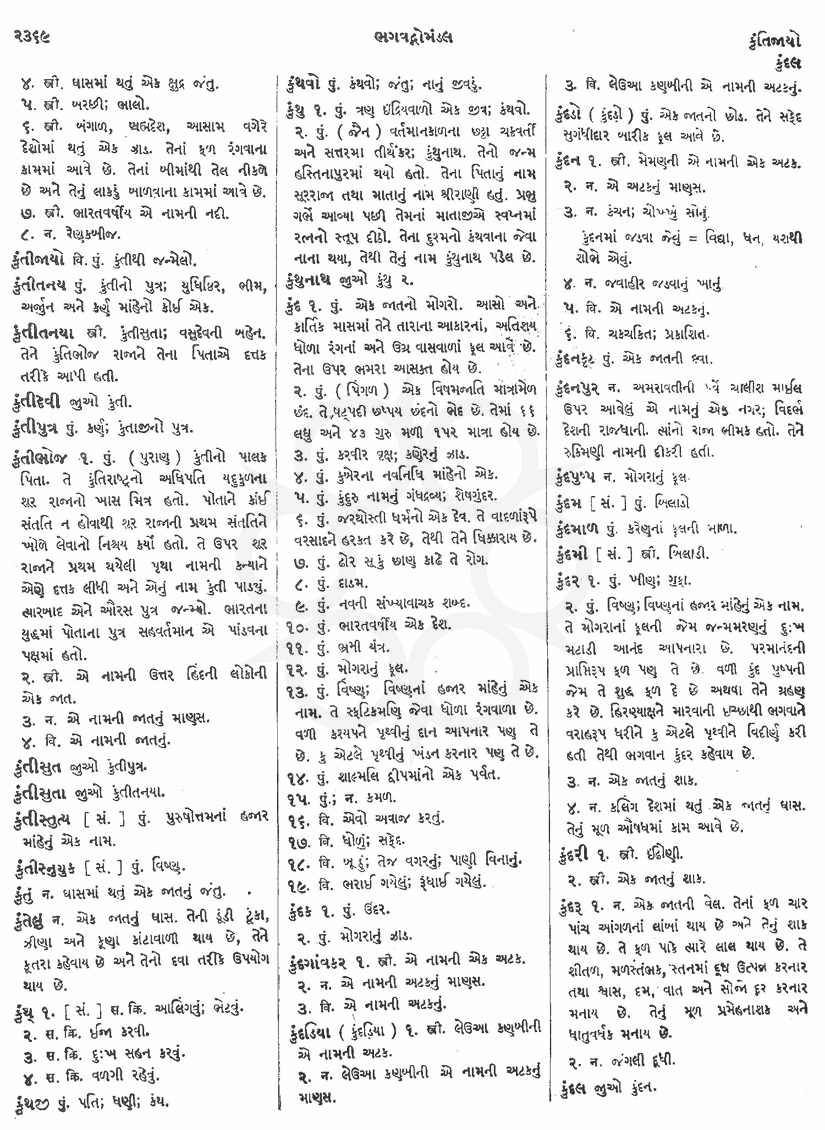 ૨૩૬૯
ભગવદ્ગોમંડલ
કુંતિજાયો
કુંદલ
૪. સ્ત્રી. ઘાસમાં થતું એક ક્ષુદ્ર જંતુ.
૫. સ્ત્રી. બરછી; ભાલો.
૬. સ્ત્રી. બંગાળ, બ્રહ્મદેશ, આસામ વગેરે
દેશોમાં થતું એક ઝાડ. તેનાં ફળ રંગવાના
કામમાં આવે છે. તેનાં બીમાંથી તેલ નીકળે
છે અને તેનું લાકડું બાળવાના કામમાં આવે છે.
૭. સ્ત્રી. ભારતવર્ષીય એ નામની નદી.
૮. ન. રેણુકબીજ.
કુંતીજાયો વિ. પું. કુંતીથી જન્મેલો.
કુંતીતનય પું. કુંતીનો પુત્ર; યુધિષ્ઠિર, ભીમ,
અર્જુન અને કર્ણ માંહેનો કોઈ એક.
કુંતીતનયા સ્ત્રી. કુંતીસુતા; વસુદેવની બહેન.
તેને કુંતિભોજ રાજાને તેના પિતાએ દત્તક
તરીકે આપી હતી.
કુંતીદેવી જુઓ કુંતી.
કુંતીપુત્ર પું. કર્ણ; કુંતાજીનો પુત્ર.
કુંતીભોજ ૧. પું. ( પુરાણ ) કુંતીનો પાલક
પિતા. તે કુંતિરાષ્ટ્રનો અધિપતિ યદુકુળના
શૂર રાજાનો ખાસ મિત્ર હતો. પોતાને કાંઈ
સંતતિ ન હોવાથી શૂર રાજાની પ્રથમ સંતતિને
ખોળે લેવાનો નિશ્ચય કર્યો હતો. તે ઉપર શૂર
રાજાને પ્રથમ થયેલી પૃથા નામની કન્યાને
એણે દત્તક લીધી અને એનું નામ કુંતી પાડ્યું.
ત્યારબાદ એને ઔરસ પુત્ર જન્મ્યો. ભારતના
યુદ્ધમાં પોતાના પુત્ર સહવર્તમાન એ પાંડવના
પક્ષમાં હતો.
૨. સ્ત્રી. એ નામની ઉત્તર હિંદની લોકોની
એક જાત.
૩. ન. એ નામની જાતનું માણસ.
૪. વિ. એ નામની જાતનું.
કુંતીસુત જુઓ કુંતીપુત્ર.
કુંતીસુતા જુઓ કુંતીતનયા.
કુંતીસ્તુત્ય [ સં. ] પું. પુરુષોત્તમનાં હજાર
માંહેનું એક નામ.
કુંતીસ્નુયુક [ સં. ] પું. વિષ્ણુ.
કુંતુ ન. ઘાસમાં થતું એક જાતનું જંતુ.
કુંતેલું ન. એક જાતનું ઘાસ. તેની ડૂંડી ટૂંકા,
ઝીણા અને કૂણા કાંટાવાળી થાય છે, તેને
કૂતરા કહેવાય છે અને તેનો દવા તરીકે ઉપયોગ
થાય છે.
કુંથ્ ૧. [ સં. ] સ. ક્રિ. આલિંગવું; ભેટવું.
૨. સ. ક્રિ. ઈજા કરવી.
૩. સ. ક્રિ. દુઃખ સહન કરવું.
૪. સ. ક્રિ. વળગી રહેવું.
કુંથજી પું. પતિ; ધણી; કંથ.
કુંથવો પું. કંથવો; જંતુ; નાનું જીવડું.
કુંથુ ૧. પું. ત્રણ ઇંદ્રિયવાળો એક જીવ; કંથવો.
૨. પું. ( જૈન ) વર્તમાનકાળના છઠ્ઠા ચક્રવર્તી
અને સત્તરમા તીર્થંકર; કુંથુનાથ. તેનો જન્મ
હસ્તિનાપુરમાં થયો હતો. તેના પિતાનું નામ
સૂરરાજા તથા માતાનું નામ શ્રીરાણી હતું. પ્રભુ
ગર્ભે આવ્યા પછી તેમનાં માતાજીએ સ્વપ્નમાં
રત્નનો સ્તૂપ દીઠો. તેના દુશ્મનો કંથવાના જેવા
નાના થયા, તેથી તેનું નામ કુંથુનાથ પડેલ છે.
કુંથુનાથ જુઓ કુંથુ ૨.
કુંદ ૧. પું. એક જાતનો મોગરો. આસો અને
કાર્તિક માસમાં તેને તારાના આકારનાં, અતિશય
ધોળા રંગનાં અને ઉગ્ર વાસવાળાં ફૂલ આવે છે.
તેના ઉપર ભમરા આસક્ત હોય છે.
૨. પું. ( પિંગળ ) એક વિષમજાતિ માત્રામેળ
છંદ. તે ષટ્પદી છપ્પય છંદનો ભેદ છે. તેમાં ૬૬
લઘુ અને ૪૩ ગુરુ મળી ૧૫૨ માત્રા હોય છે.
૩. પું. કરવીર વૃક્ષ; કણેરનું ઝાડ.
૪. પું. કુબેરના નવનિધિ માંહેનો એક.
૫. પું. કુંદુરુ નામનું ગંધદ્રવ્ય; શેષગુંદર.
૬. પું. જરથોસ્તી ધર્મનો એક દેવ. તે વાદળાંરૂપે
વરસાદને હરકત કરે છે, તેથી તેને ધિક્કારાય છે.
૭. પું. ઢોર સૂકું છાણ કાઢે તે રોગ.
૮. પું. દાડમ.
૯. પું. નવની સંખ્યાવાચક શબ્દ.
૧૦. પું. ભારતવર્ષીય એક દેશ.
૧૧. પું. ભ્રમી યંત્ર.
૧૨. પું. મોગરાનું ફૂલ.
૧૩. પું. વિષ્ણુ; વિષ્ણુનાં હજાર માંહેનું એક
નામ. તે સ્ફટિકમણિ જેવા ધોળા રંગવાળા છે.
વળી કશ્યપને પૃથ્વીનું દાન આપનાર પણ તે
છે. કુ એટલે પૃથ્વીનું ખંડન કરનાર પણ તે છે.
૧૪. પું. શાલ્મલિ દ્વીપમાંનો એક પર્વત.
૧૫. પું.; ન. કમળ.
૧૬. વિ. એવો અવાજ કરતું.
૧૭. વિ. ધોળું; સફેદ.
૧૮. વિ. બૂઠું; તેજ વગરનું; પાણી વિનાનું.
૧૯. વિ. ભરાઈ ગયેલું; રૂંધાઈ ગયેલું.
કુંદક ૧. પું. ઉંદર.
૨. પું. મોગરાનું ઝાડ.
કુંદગાંવકર ૧. સ્ત્રી. એ નામની એક અટક.
૨. ન. એ નામની અટકનું માણસ.
૩. વિ. એ નામની અટકનું.
કુંદડિયા ( કુંદડિયા ) ૧. સ્ત્રી. લેઉઆ કણબીની
એ નામની અટક.
૨. ન. લેઉઆ કણબીની એ નામની અટકનું
માણસ.
૩. વિ. લેઉઆ કણબીની એ નામની અટકનું.
કુંદડો ( કુંદડો ) પું. એક જાતનો છોડ. તેને સફેદ
સુગંધીદાર બારીક ફૂલ આવે છે.
કુંદન ૧. સ્ત્રી. મેમણની એ નામની એક અટક.
૨. ન. એ અટકનું માણસ.
૩. ન. કંચન; ચોખ્ખું સોનું.
કુંદનમાં જડવા જેવું = વિદ્યા, ધન, યશથી
શોભે એવું.
૪. ન. જવાહીર જડવાનું ખાનું.
૫. વિ. એ નામની અટકનું.
૬. વિ. ચકચકિત; પ્રકાશિત.
કુંદનકૂટ પું. એક જાતની દવા.
કુંદનપુર ન. અમરાવતીની પૂર્વે ચાલીશ માઈલ
ઉપર આવેલું એ નામનું એક નગર; વિદર્ભ
દેશની રાજધાની. ત્યાંનો રાજા ભીમક હતો. તેને
રુક્મિણી નામની દીકરી હતી.
કુંદપુષ્પ ન. મોગરાનું ફૂલ.
કુંદમ [ સં. ] પું. બિલાડો
કુંદમાળ પું. કરેણના ફૂલની માળા.
કુંદમી [ સં. ] સ્ત્રી. બિલાડી.
કુંદર ૧. પું. ખીણ; ગુફા.
૨. પું. વિષ્ણુ; વિષ્ણુનાં હજાર માંહેનું એક નામ.
તે મોગરાનાં ફૂલની જેમ જન્મમરણનું દુઃખ
મટાડી આનંદ આપનારા છે. પરમાનંદની
પ્રાપ્તિરૂપ ફળ પણ તે છે. વળી કુંદ પુષ્પની
જેમ તે શુદ્ધ ફળ દે છે અથવા તેને ગ્રહણ
કરે છે. હિરણ્યાક્ષને મારવાની ઇચ્છાથી ભગવાને
વરાહરૂપ ધરીને કુ એટલે પૃથ્વીને વિદીર્ણ કરી
હતી તેથી ભગવાન કુંદર કહેવાય છે.
૩. ન. એક જાતનું શાક.
૪. ન. કલિંગ દેશમાં થતું એક જાતનું ઘાસ.
તેનું મૂળ ઔષધમાં કામ આવે છે.
કુંદરી ૧. સ્ત્રી. ઈંઢોણી.
૨. સ્ત્રી. એક જાતનું શાક.
કુંદરૂ ૧. ન. એક જાતની વેલ. તેનાં ફળ ચાર
પાંચ આંગળનાં લાંબા થાય છે અને તેનું શાક
થાય છે. તે ફળ પાકે ત્યારે લાલ થાય છે. તે
શીતળ, મળસ્તંભક, સ્તનમાં દૂધ ઉત્પન્ન કરનાર
તથા શ્વાસ, દમ, વાત અને સોજો દૂર કરનાર
મનાય છે. તેનું મૂળ પ્રમેહનાશક અને
ધાતુવર્ધક મનાય છે.
૨. ન. જંગલી દૂધી.
કુંદલ જુઓ કુંદન.